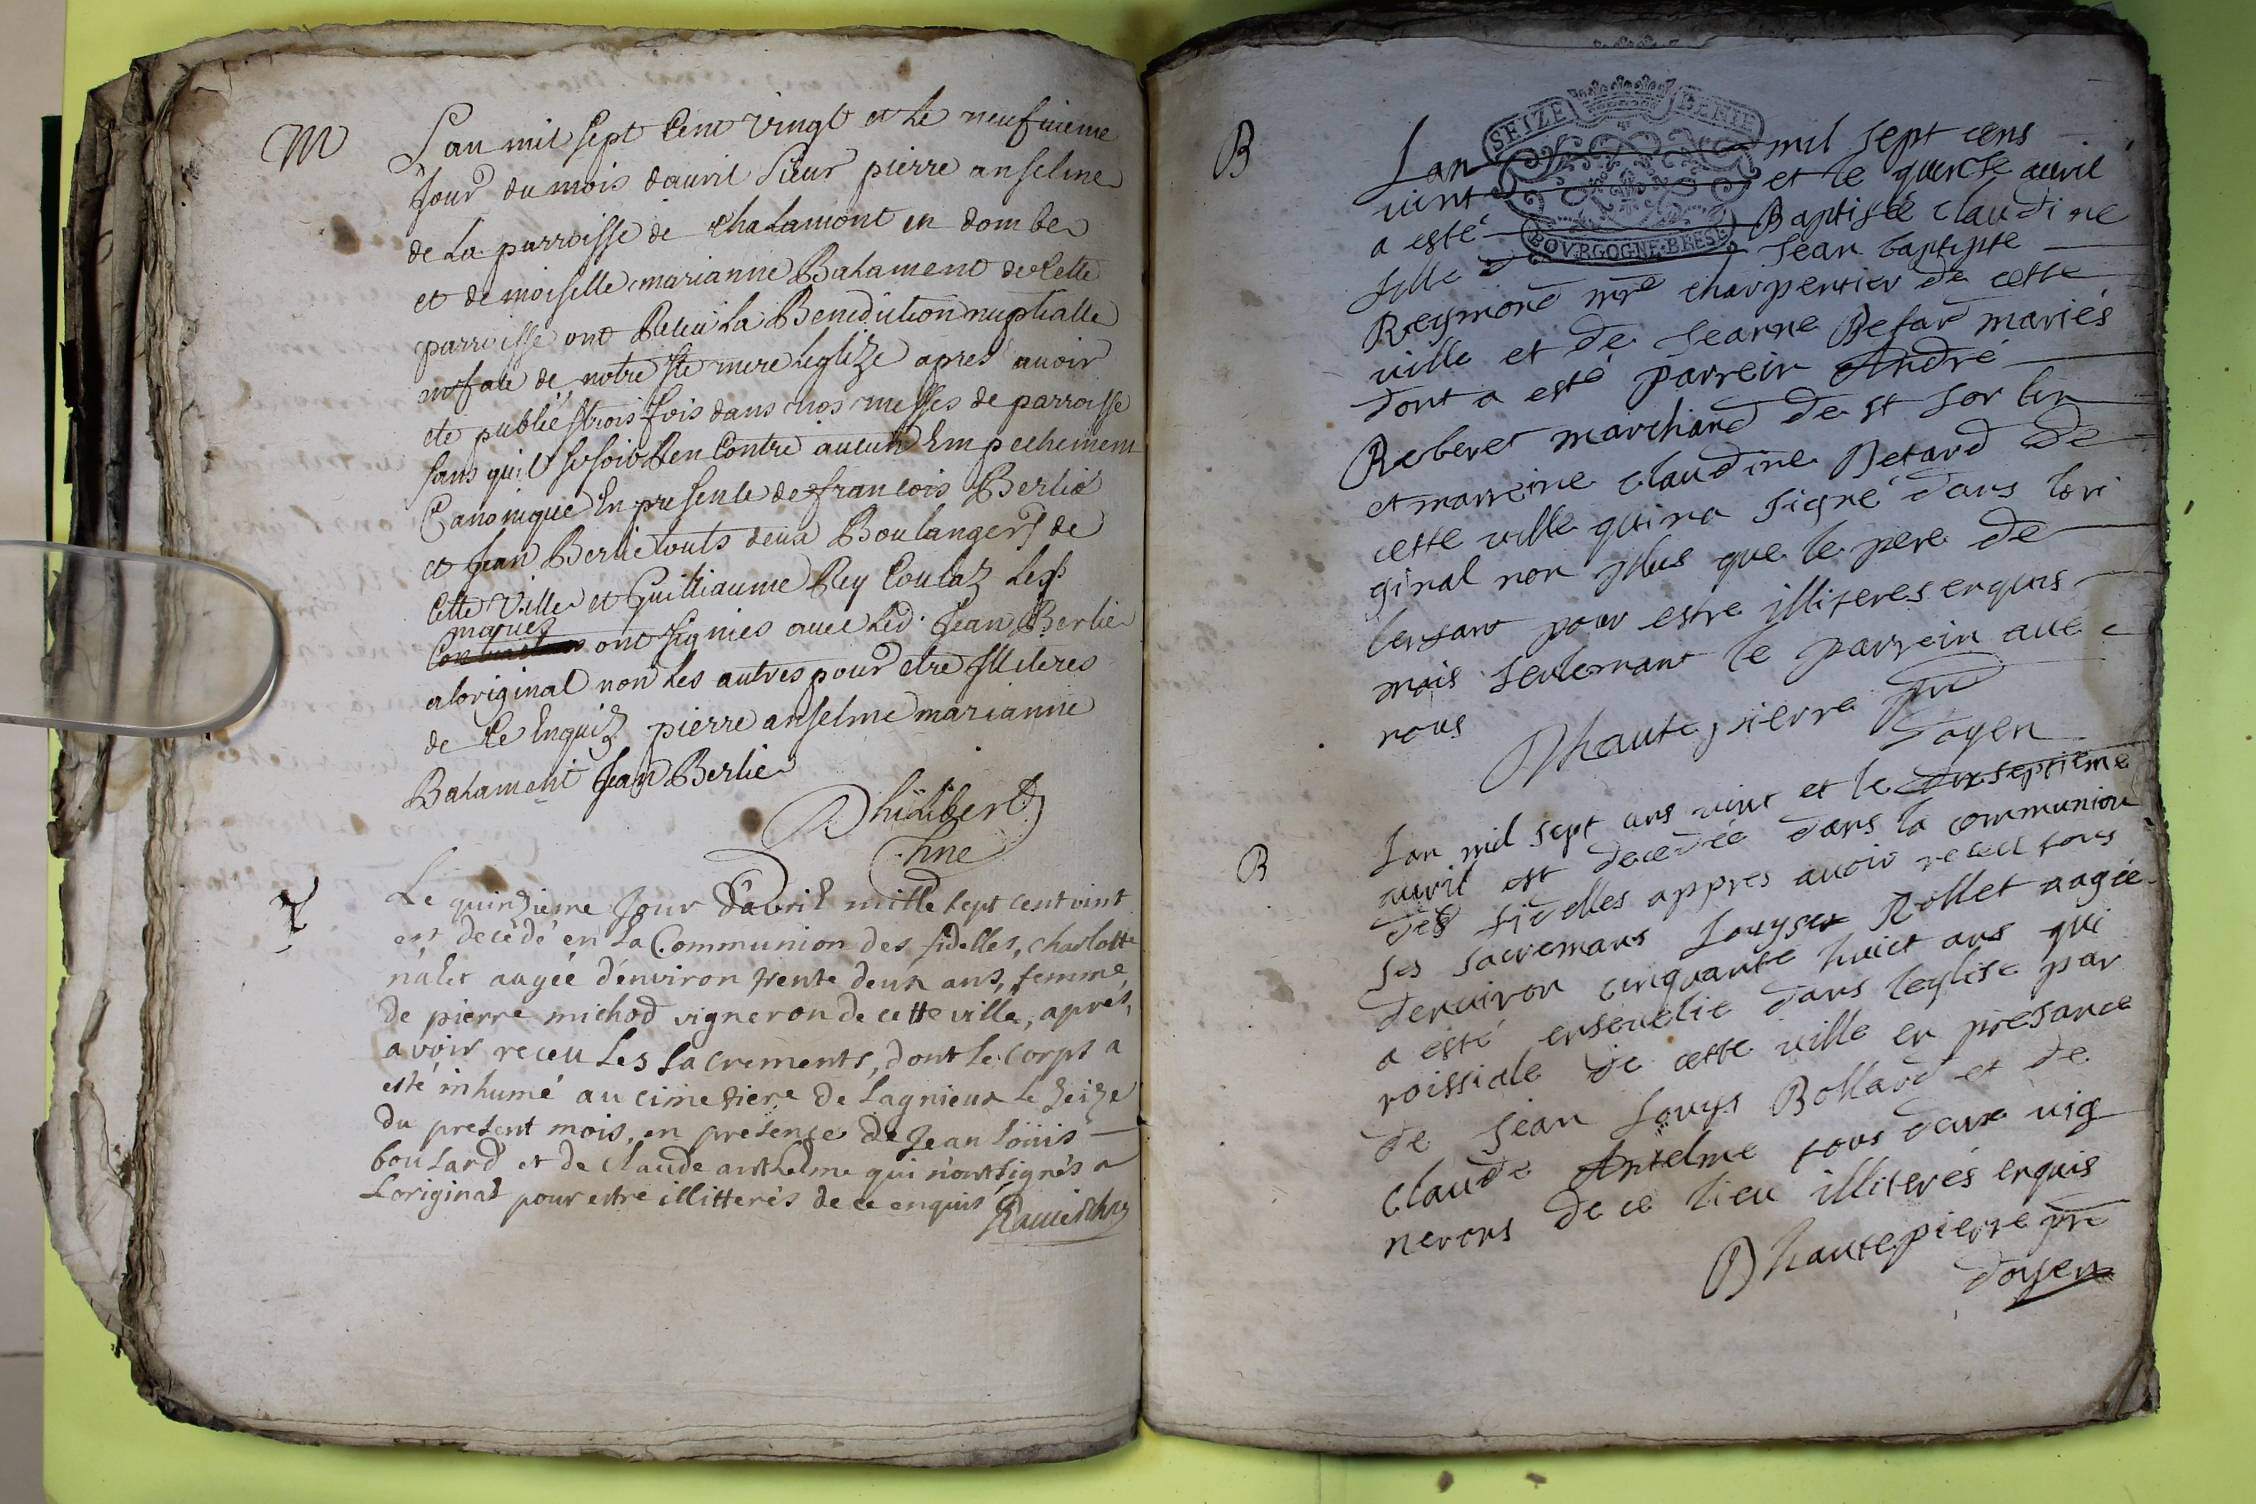 M
L'an mil sept Cent vingt et Le neufvieme
Jour du mois d'avril Sieur pierre anselme
de La parroisse de Chalamont en dombe
et demoiselle marianne Balament de Cette
parroisse ont Receu La Benediction nuptialle
en face de notre Ste mere leglize apres avoir
ete publiés trois fois dans nos messes de parroisse
sans quil se soit Rencontré aucun Empechement
Canonique En presence de francois Berlié
et Jean Berlié touts deux Boulangers de
Cette Ville et Guilliaume Rey Coulaz Les
mariez
ont signies avec Led. Jean Berlie
a loriginal non Les autres pour etre Illiteres
de Ce Enquis pierre anselme marianne
Balament Jean Berlie
Philibert
Le quinzieme Jour d'avril mille sept cent vint
est decédé en La Communion des fidelles, charlotte
nalet augée d'environ trente deux ans, femme
de pierre michod vigneron de cette ville, aprés
avoir receu Les sacrements, dont Le corps a
esté inhumé au cimetiere de Lagnieux Le Zeize
du present mois, en presence de Jean Loüis
boulard et de claude anthelme qui n'ont signés a
L'original pour estre illitterés de ce enquis
B
SEIZE DENIE
BOVRGOGNE BRESE
Lan mil sept cens
vint et le quinze avril
a esté Baptisée claudine
fille d Jean baptipte
Reymond mre charpentier de cette
ville et de Jeanne Betard mariés
dont a esté parrein André
Roberet marchand de st sorlin
et marreine claudine Betard de
cette ville qui na signé dans lori
ginal non plus que le pere de
lenfant pour estre illiteres enquis
mais seulemant le parrein avec
nous Dhautepierre pre
doyen
B
Lan mil sept cens vint et le dixseptieme
avril est decedée dans la communion
des fidelles appres avoir receu tous
ses sacremans Louyse Rollet aagée
denviron cinquante huict ans qui
a esté ensevelie dans leglise par
roissiale de cette ville en presance
de Jean Louys Bollard et de
claude Antelme tous deux vig
nerons de ce lieu illiterés enquis
Dhautepierre pre
doyen